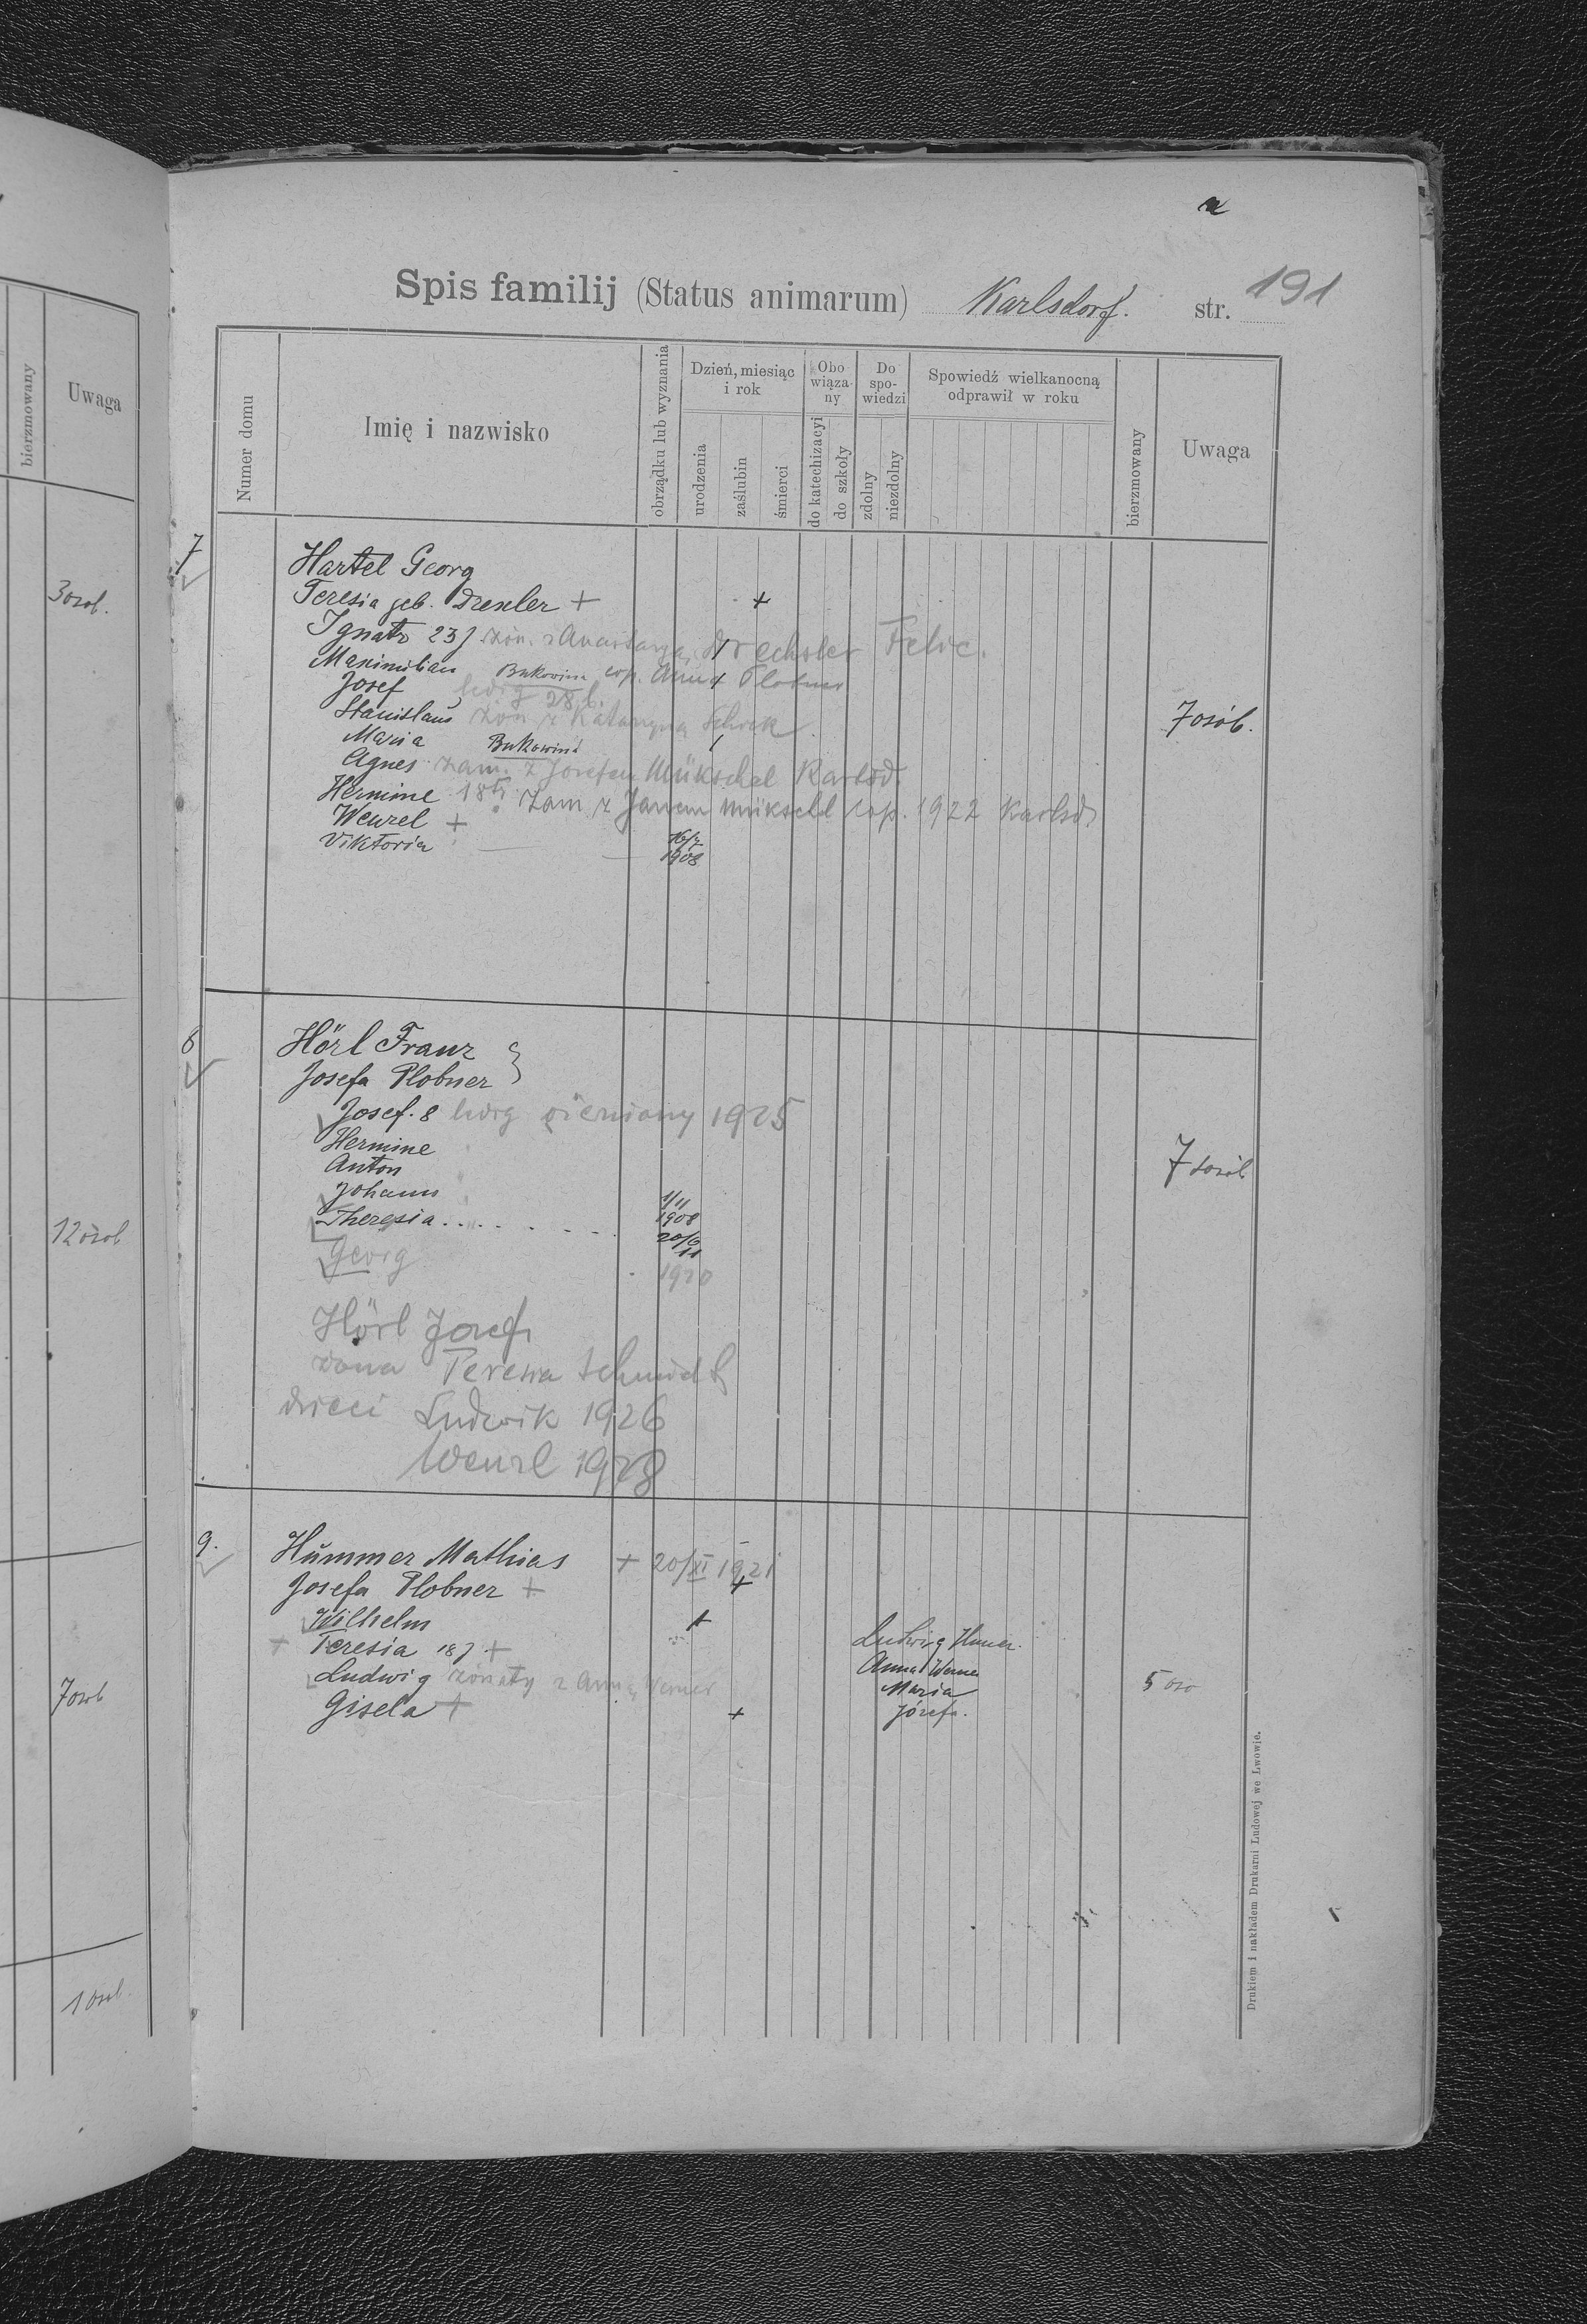 Uwaga
bierzmowany
3 osob.
12 osob
7 osob
1 osob.
Spis familij (Status animarum) Karlsdorf. str. 191
Numer domu
Imię i nazwisko
obrządku lub wyznania
Dzień, miesiąc i rok
urodzenia
zaślubin
śmierci
Obowiązany
do katechizacyi
do szkoły
Do spowiedzi
zdolny
niezdolny
Spowiedź wielkanocną odprawił w roku
bierzmowany
Uwaga
7
Hartel Georg
Teresia geb. Drexler + +
Ignatz 23 j. Drechsler Felic.
Maximilian Bukowina cop. Anna Plobner
Josef 28 l.
Stanislaus żon z Katarzyną
Maria Bukowina
7 osób.
Agnes zam. z Josefem Mükschel Karlsd.
Hermine 18 zam z Janem Mükschl cop. 1922 Karlsd.
Wenzel +
Viktoria 16/7 1908
8
Hörl Franz
Josefa Plobner
Josef. 8 żeniony 1925
Hermine
Anton
7 osób
Johann 1/11 1908
Theresia 20/6 11
Georg 1920
Hörl Josef
żona Teresia Schmidt
dzieci Ludwik 1926
Wenzl 1928
9.
Hummer Mathias + 20/XI 1921
Josefa Plobner + +
Wilhelm +
+ Teresia 18 j + Ludwig Humer.
Ludwig żonaty z Anną Werner Anna Werner
Maria
5 oso
Gisela + + Józefa.
Drukiem i nakładem Drukarni Ludowej we Lwowie.